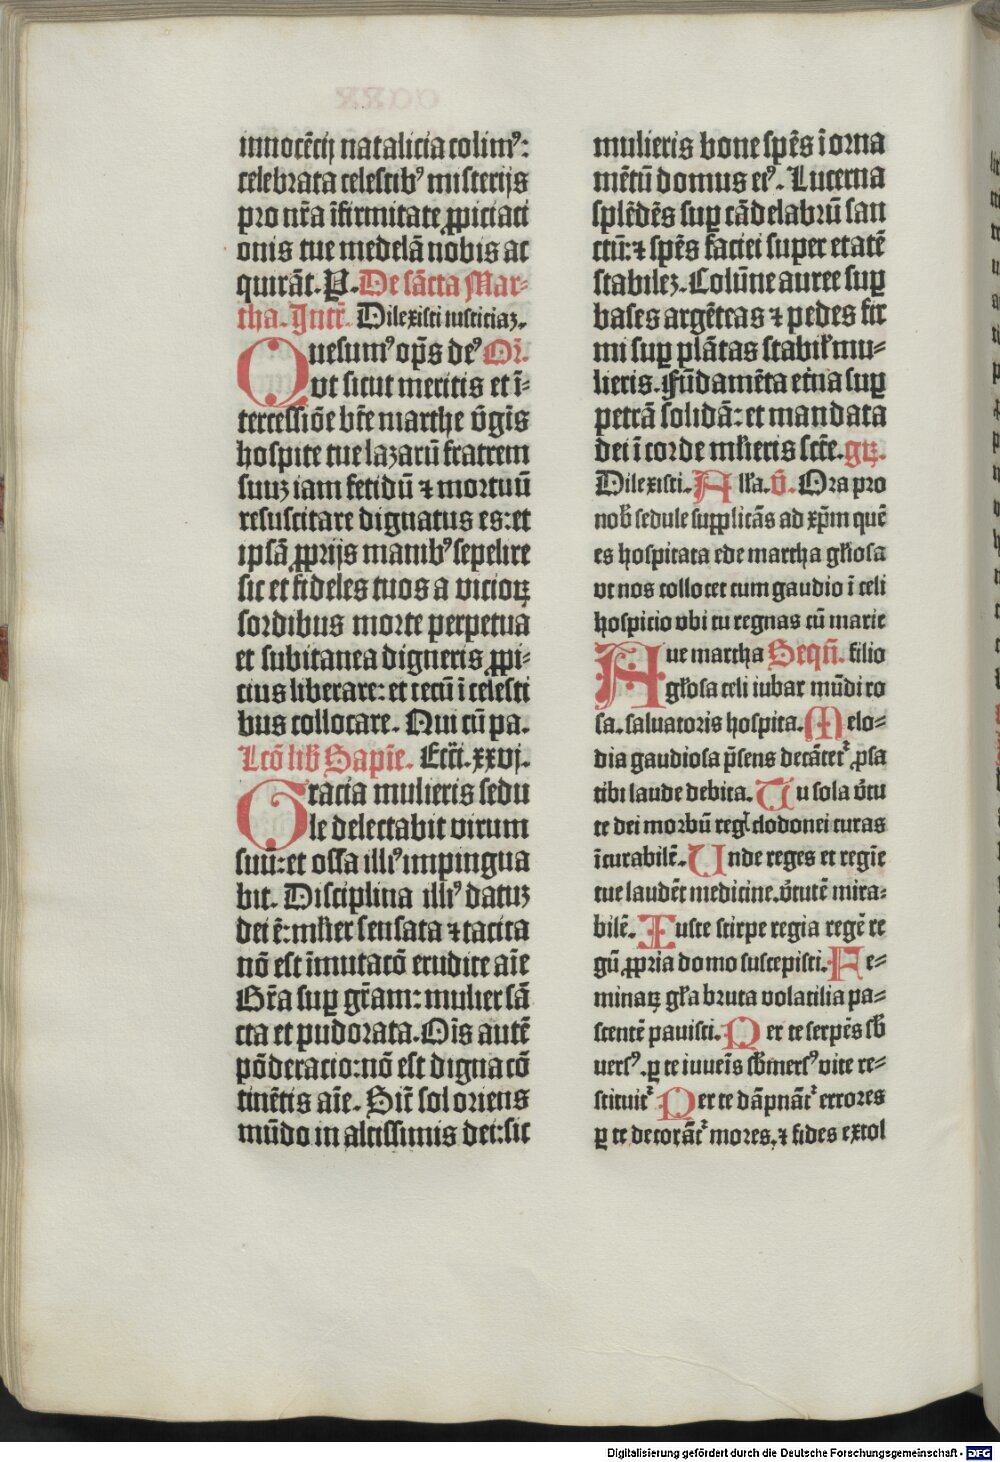 innocēcij natalicia colimꝰ:
celebrata celestibꝰ misterijs
pro nr̄a īfirmitate ꝓpiciaci
onis tue medelā nobis ac
quirāt. P̲. De sācta Mar-
tha. Intr̄. Dilexisti iusticiaz.
Quesumꝰ op̄s deꝰ Or̄.
vt sicut meritis et ī-
tercessiōe bt̄e marthe v̄gīs
hospite tue lazarū fratrem
suuz iam fetidū ⁊ mortuū
resuscitare dignatus es: et
ipsā ꝓprijs manibꝰ sepelire
sic et fideles tuos a vicioꝝ
sordibus morte perpetua
et subitanea digneris ꝓpi-
cius liberare: et tecū ī celesti
bus collocare. Qui cū pa.
Lcō lib̄ Sapīe. Ecc̄i. xxvj.
Gracia mulieris sedu
le delectabit virum
suū: et ossa illiꝰ impingua
bit. Disciplina illiꝰ datuz
dei ē: ml̄ier sensata ⁊ tacita
nō est īmutacō erudite aīe
Gr̄a suꝑ gr̄am: mulier sā
cta et pudorata. Oīs autē
pōderacio: nō est digna cō
tinētis aīe. Sic̄ sol oriens
mūdo in altissimis dei: sic
mulieris bone spēs ī orna
mētū domus eiꝰ. Lucerna
splēdēs suꝑ cādelabrū san
ctū: ⁊ spēs faciei super etatē
stabilez. Colūne auree suꝑ
bases argēteas ⁊ pedes fir
mi suꝑ plātas stabil̄ mu-
lieris. Fūdamēta et̄na suꝑ
petrā solidā: et mandata
dei ī corde ml̄ieris sct̄e. gꝝ.
Dilexisti. All̄a. v̄. Ora pro
nob̄ sedule supplicās ad xp̄m quē
es hospitata ede martha gl̄iosa
vt nos collocet cum gaudio ī celi
hospicio vbi tu regnas cū marie
Aue martha Seqn̄. filio
gl̄osa celi iubar mūdi ro
sa. saluatoris hospita. Melo-
dia gaudiosa p̄sens decātetᷣ ꝓsa
tibi laude debita. Tu sola v̄tu
te dei morbū regꝭ clodonei curas
īcurabilē. Unde reges et regīe
tue laudēt medicine. v̄tutē mira-
bilē. Iuste stirpe regia regē re
gū ꝓpria domo suscepisti. Fe-
minaꝝ gl̄a bruta volatilia pa-
scentē pauisti. Per te serpēs sb̄
uersꝰ. ꝑ te iuueīs sb̄mersꝰ vite re-
stituitᷣ Per te dāpnātᷣ errores
ꝑ te decorātᷣ mores, ⁊ fides extol
Digitalisierung gefördert durch die Deutsche Forschungsgemeinschaft - DFG